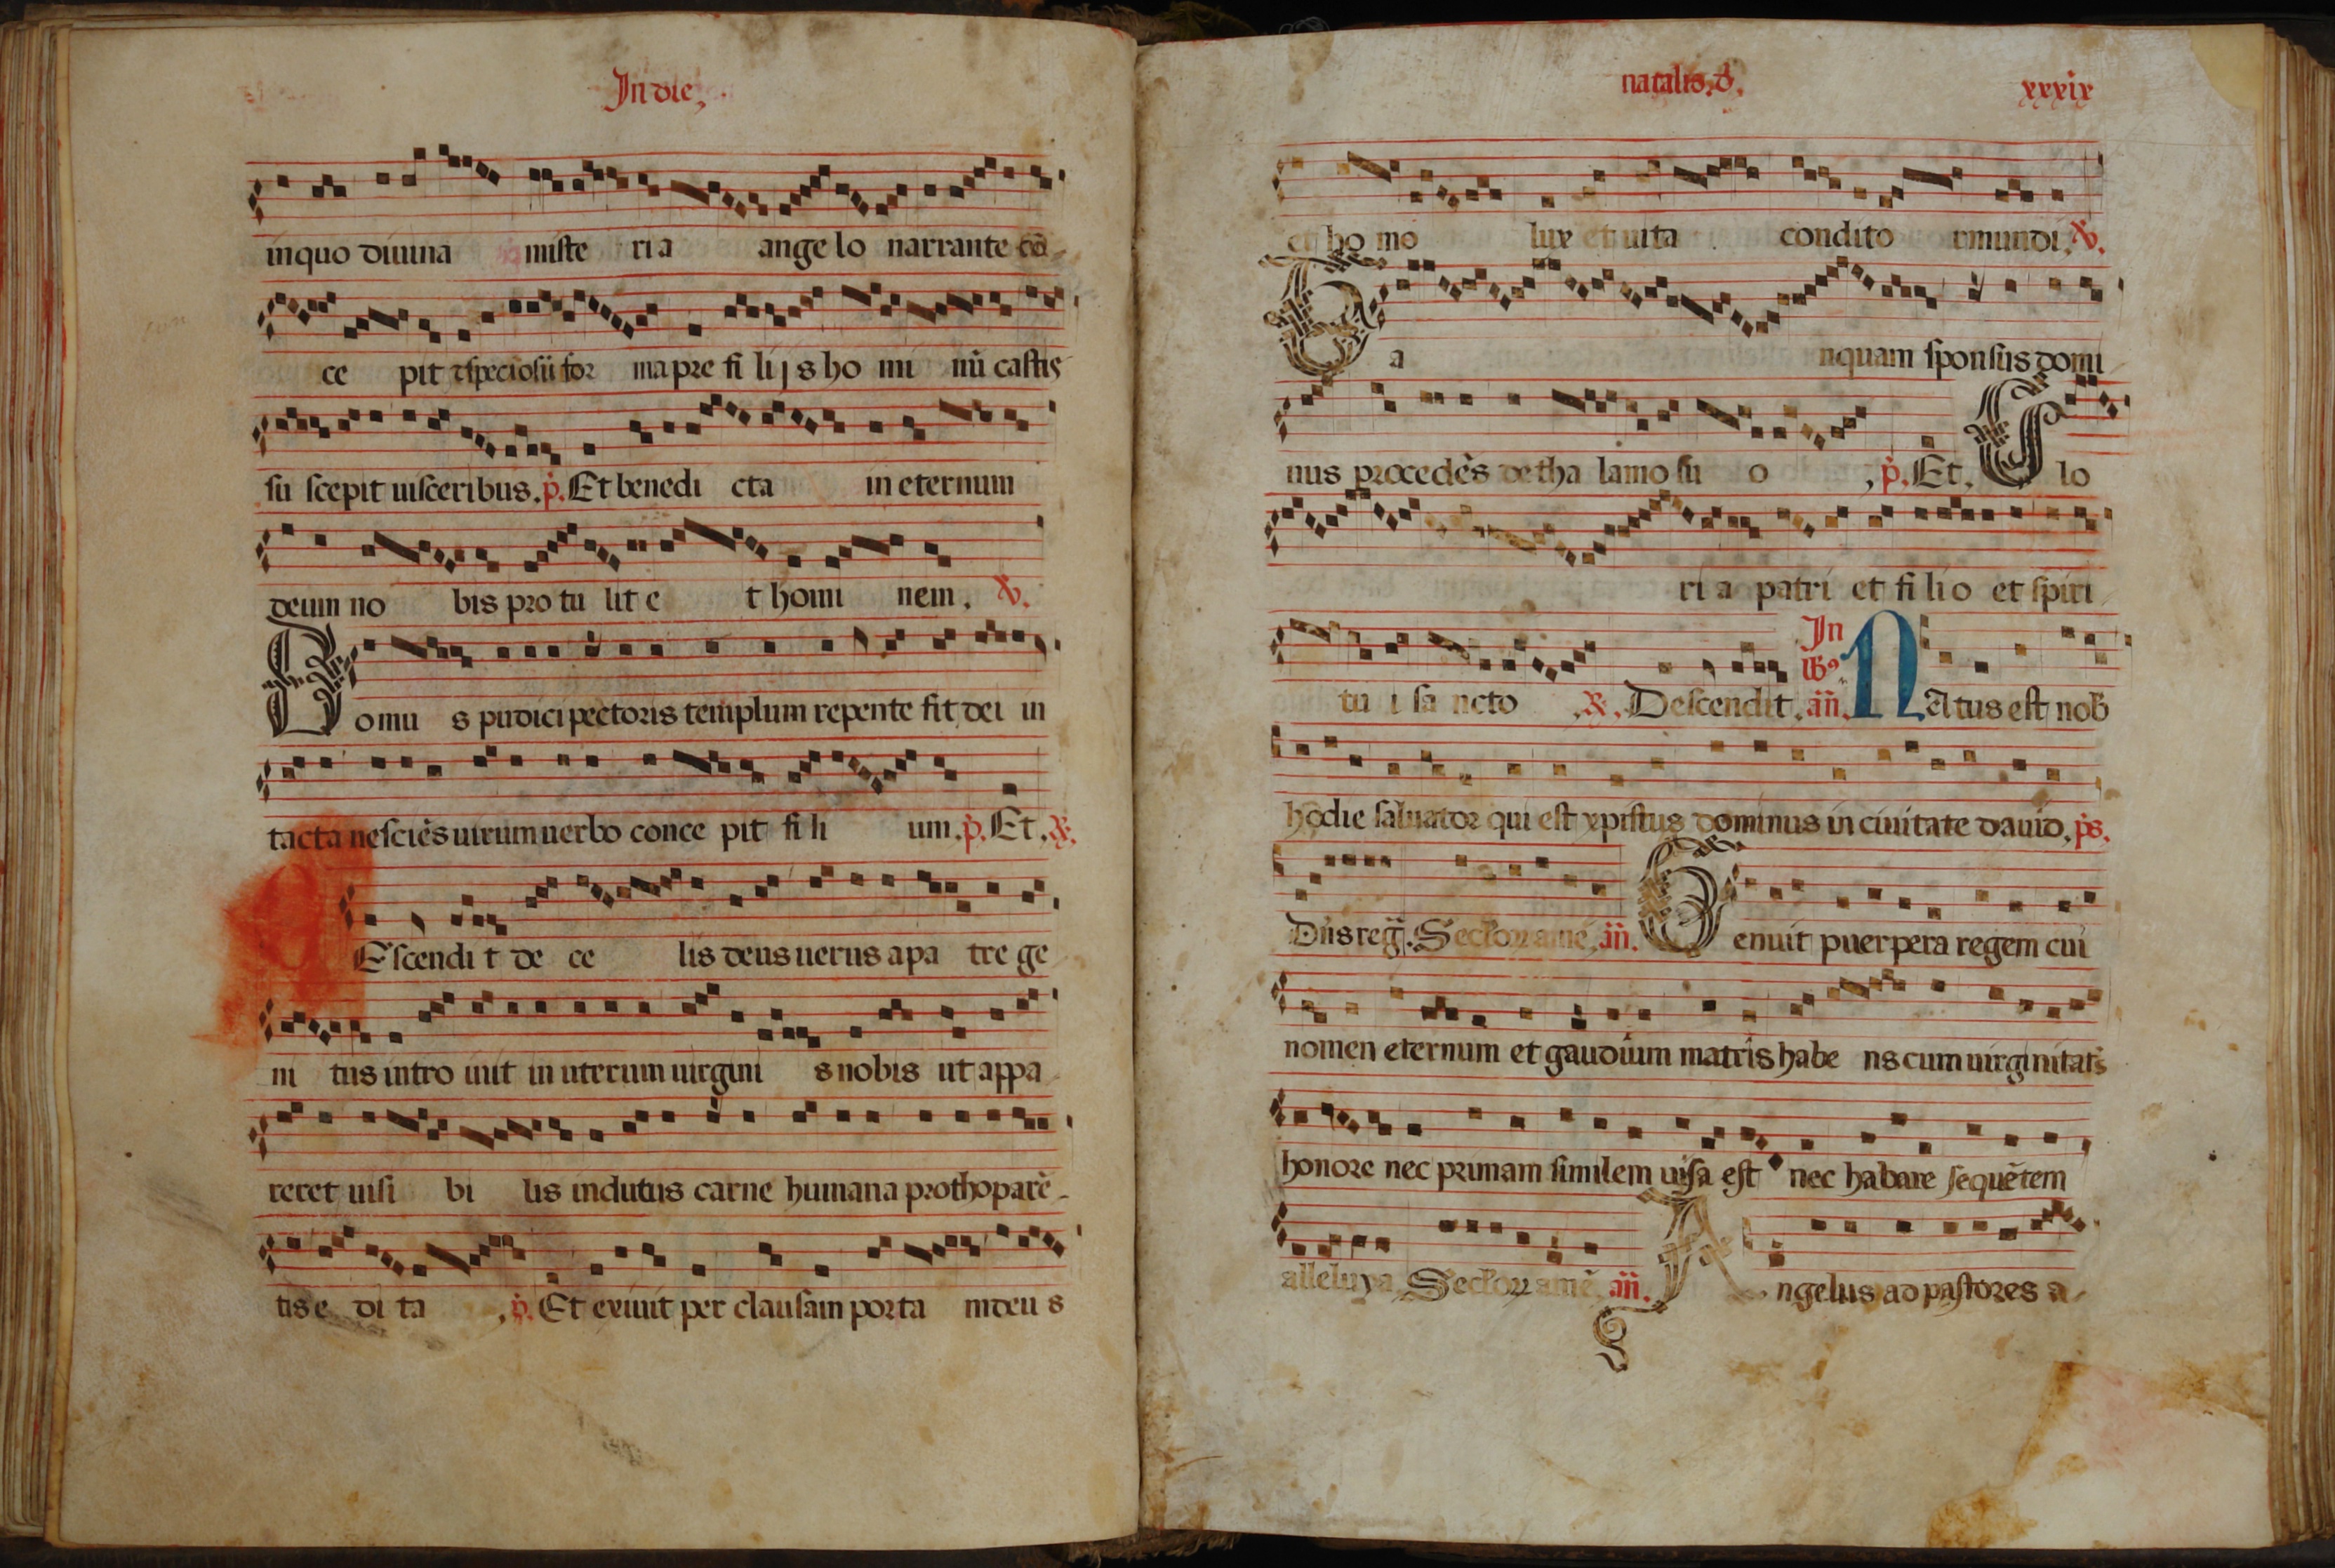 In die,
inquo diuina miste ri a ange lo narrante cō-
ce pit ⁊speciosū for ma pre fi lij s ho mi nū castis
su scepit uisceribus. p̄. Et benedi cta in eternum
deum no bis pro tu lit e t homi nem, ℣.
Domu s pudici pectoris templum repente fit dei in
tacta nesciēs uirum uerbo conce pit fi li um. p̄. Et, ℟.
Escendi t de ce lis deus uerus a pa tre ge
ni tus intro iuit in uterum uirgini s nobis ut appa
reret uisi bi lis indutus carne humana prothoparē-
tis e di ta , p̄. Et exiuit per clausam porta m deu s
natalis. d̄. xxxix
et ho mo lux et uita condito r mundi, ℣.
Ta nquam sponsus domi
nus procedēs de tha lamo su o , p̄. Et, Glo
ri a patri et fi li o et spiri
tu i sa ncto , ℟. Descendit. In lb9 an̄. NAtus est nob
hodie saluator qui est xpistus dominus in ciuitate dauid, ps.
Dn̄s reg̃. Sectorr amē, an̄. Genuit puerpera regem cui
nomen eternum et gaudium matris habe ns cum uirginitatis
honore nec primam similem uisa est nec habare sequētem
alleluya Sectorr amē an̄. Angelus ad pastores a-